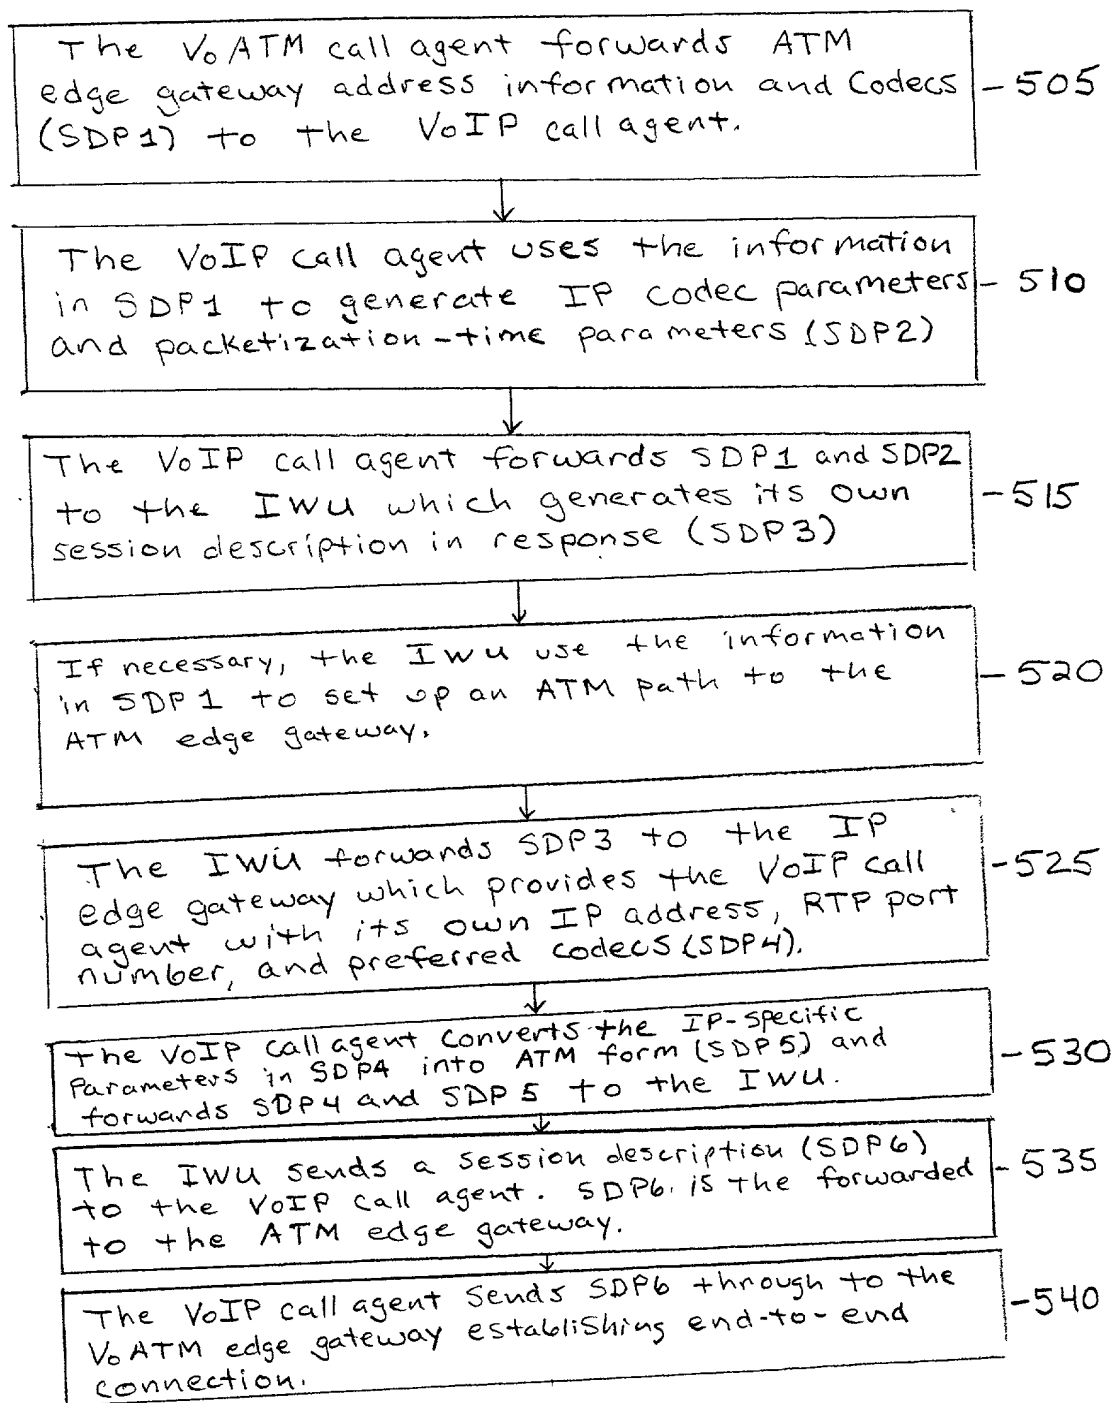 The VoATM call agent forwards ATM
edge gateway address information and Codecs
(SDP1) to the VoIP call agent.
-505
The VoIP call agent uses the information
in SDP1 to generate IP codec parameters
and packetization-time parameters (SDP2)
-510
The VoIP call agent forwards SDP1 and SDP2
to the IWU which generates its own
session description in response (SDP3)
-515
If necessary, the IWU use the information
in SDP1 to set up an ATM path to the
ATM edge gateway.
-520
The IWU forwards SDP3 to the IP
edge gateway which provides the VoIP call
agent with its own IP address, RTP port
number, and preferred codecs (SDP4).
-525
The VoIP call agent converts the IP-specific
Parameters in SDP4 into ATM form (SDP5) and
forwards SDP4 and SDP5 to the IWU.
-530
The IWU sends a session description (SDP6)
to the VoIP call agent. SDP6. is the forwarded
to the ATM edge gateway.
-535
The VoIP call agent sends SDP6 through to the
VoATM edge gateway establishing end-to-end
connection.
-540